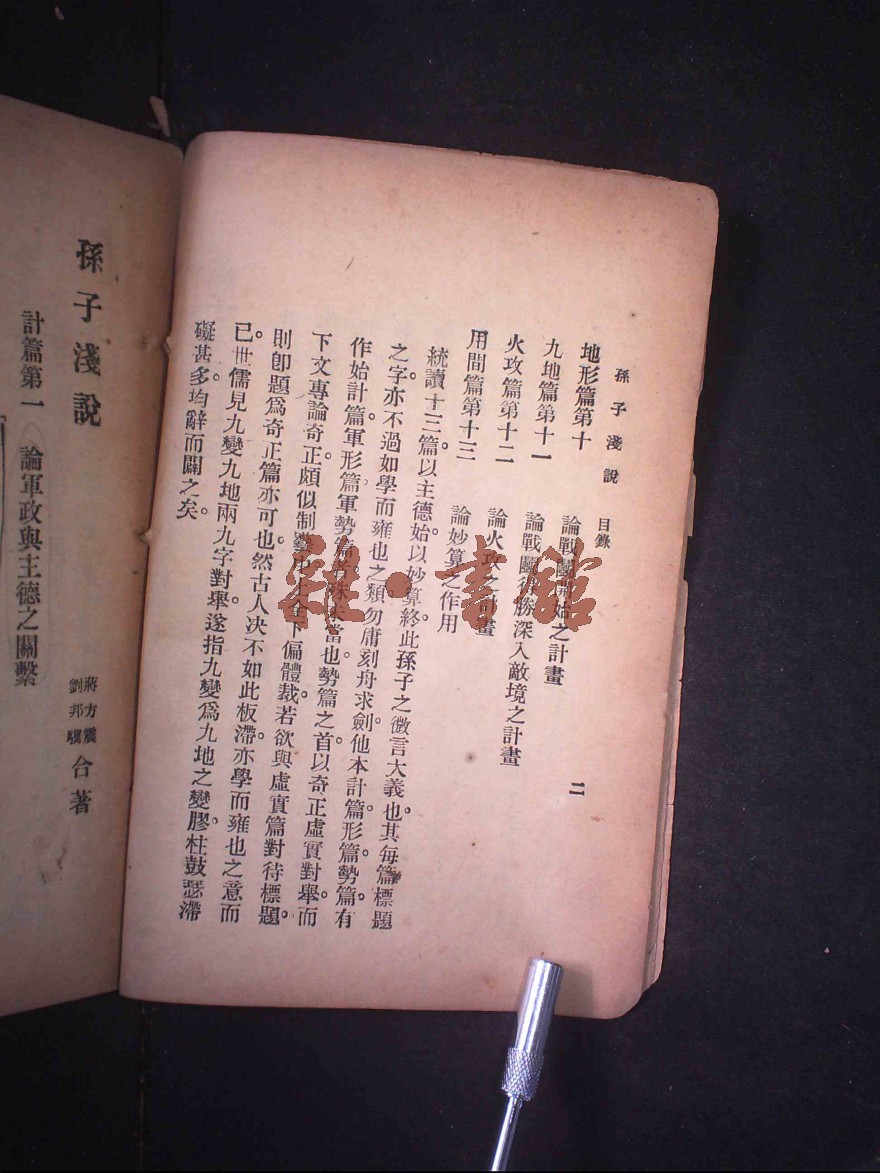 孫子淺說 目錄 二
地形篇第十 論戰鬭開始之計畫
九地篇第十一 論戰鬭得勝深入敵境之計畫
火攻篇第十二 論火攻之計畫
用間篇第十三 論妙算之作用
統讀十三篇以主德始以妙算終此孫子之微言大義也其每篇標題
之字亦不過如學而雍也之類勿庸刻舟求劍他本計篇形篇勢篇有
作始計篇軍形篇軍勢篇者殊未當也勢篇之首以奇正虛實對舉而
下文專論奇正頗似制藝中上全下偏體裁若欲與虛實篇對待標題
則卽題爲奇正篇亦可也然古人决不如此板滯亦學而雍也之意而
已世儒見九變九地兩九字對舉遂指九變爲九地之變膠柱鼓瑟滯
礙甚多均辭而闢之矣。
孫子淺說
蔣方震
劉邦驥 合著
計篇第一 論軍政與主德之關繫
雜·書館